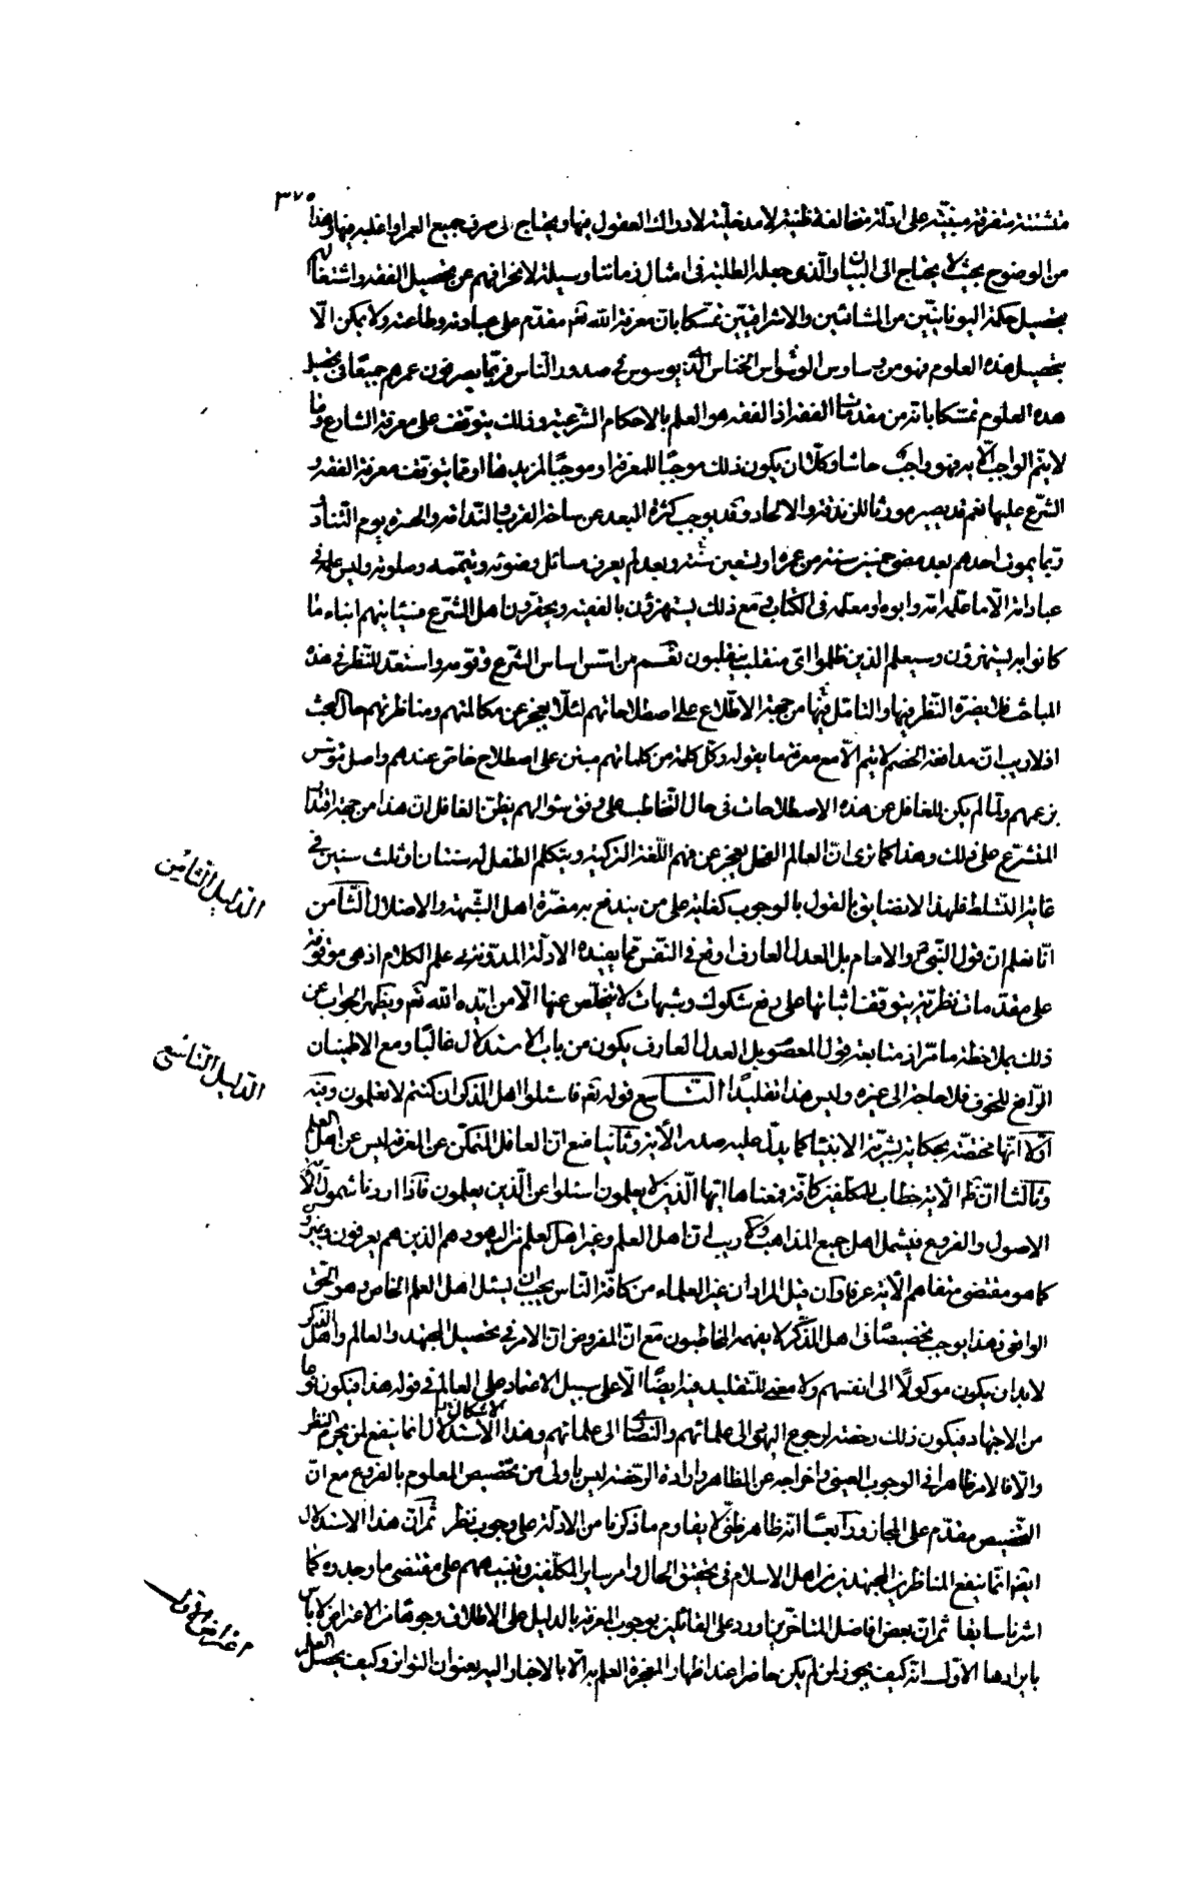 ٣٧٥
متشتتة متفرقة مبتنية على ادلة متخالفة ظنية لا مدخلية لادراك العقول فيها ويحتاج الى صرف جميع العمر او اغلبه فيها وهذا
من الوضوح بحيث لا يحتاج الى البيان والذى جعله الطلبة فى امثال زماننا وسيلة لانحرافهم عن تحصيل الفقه واشتغالهم
بتحصيل حكمة اليونانيّين من المشائين والاشراقيّين تمسّكا بان معرفة الله تعم مقدّم على عبادته وطاعته ولا يمكن الّا
بتحصيل هذه العلوم فهو من وساوس الوسواس الخناس الذى يوسوس فى صدور النّاس فربّما يصرفون عمرهم جميعًا فى تحصيل
هذه العلوم تمسّكا بانه من مقدمات الفقه اذ الفقه هو العلم بالاحكام الشّرعية وذلك يتوقف على معرفة الشارع وما
لا يتمّ الواجب الّا به فهو واجب حاشا وكلّا ان يكون ذلك موجبًا للمعرفة او موجبًا لمزيدها او ممّا يتوقف معرفة الفقه و
الشّرع عليها نعم قد يصير مورثا للزندقة والالحاد وقد يوجب كثرة البعد عن ساحة القرب والنّدامة والحسرة يوم التّناد
وربما يموت احدهم بعد مضىّ خمسين سنة من عمره او تسعين سنة وبعد لم يعرف مسائل وضوئه وتيمّمه وصلوته وليس عليه فى
عباداته الّا ما علّمه امّه وابوه او معلّمه فى الكتاب ومع ذلك يستهزؤن بالفقيه ويحقرون اهل الشّرع فسيأتيهم انباء ما
كانوا به يستهزؤن وسيعلم الذين ظلموا اىّ منقلب ينقلبون نعم من اسّس اساس الشّرع وقوّمه واستعدّ للنّظر فى هذه
المباحث فلا يضرّه النّظر فيها والتامّل فيها من جهة الاطّلاع على اصطلاحاتهم لئلّا يعجز عن مكالمتهم ومناظرتهم حال البحث
اذ لا ريب ان مدافعة الخصم لا يتم الّا مع معرفة ما يقوله وكلّ كلمة من كلماتهم مبتن على اصطلاح خاصّ عندهم واصل مؤسّس
بزعمهم ولما لم يكن للغافل عن هذه الاصطلاحات فى حال التخاطب على وفق سؤالهم يظنّ الغافل ان هذا من جهة اقتدار
المتشرّع على ذلك وهذا كما ترى انّ العالم الفحل يعجز عن فهم اللّغة التركيّة ويتكلم الطفل له سنتان او ثلث سنين فى
غاية التّسلط فلهذا لا نضايق بالقول بالوجوب كفاية على من يندفع به مضرّة اهل الشّبهة والاضلال الثّامن
انّا نعلم انّ قول النّبىّ ص والامام بل العدل العارف اوقع فى النّفس ممّا يفيده الادلّة المدوّنة فى علم الكلام اذ هى موقوفة
على مقدّمات نظريّة يتوقف اثباتها على دفع شكوك وشبهات لا يتخلّص عنها الّا من ايّده الله تعم ويظهر الجواب عن
ذلك بملاحظة ما مرّ اذ متابعة قول المعصوم بل العدل العارف يكون من باب الاستدلال غالبًا ومع الاطمينان
الرّافع للخوف فلا حاجة الى غيره وليس هذا تقليدًا التاسع قوله تعم فاسئلوا اهل الذكر ان كنتم لا تعلمون وفيه
اوّلا انّها مختصّة بحكاية بشريّة الانبياء كما يدلّ عليه صدر الآية وثانيا منع انّ العاقل المتمكّن عن المعرفة ليس عن اهل العلم
وثالثا انّ نظم الآية خطاب للمكلّفين كافّة فمعناها ايّها الّذين لا يعلمون اسئلوا عن الّذين يعلمون فاذا اردنا شمول الآية
الاصول والفروع فيشمل اهل جميع المذاهب ولا ريب انّ اهل العلم وغير اهل العلم من اليهود هم الذين هم يعرفون وغيره
كما هو مقتضى متفاهم الآية عرفا وان قيل المراد ان غير العلماء من كافّة النّاس يجب ان يسئل اهل العلم الخاص وهو المحقّ
الواقع فهذا يوجب تخصيصًا فى اهل الذّكر لا يفهمه المخاطبون مع انّ المفروض انّ الامر فى تحصيل المجتهد والعالم واهل الذكر
لا بد ان يكون موكولًا الى انفسهم ولا معنى للتّقليد فيه ايضًا الّا على سبيل الاعتماد على العالم فى قوله هذا فيكون نوعا
من الاجتهاد فيكون ذلك رخصة لرجوع اليهود الى علمائهم والنّصارى الى علمائهم وهذا الاستدلال انما ينفع لمن يحرم النظر
والّا فالامر ظاهر فى الوجوب العينى واخراجه عن الظاهر وارادة الرّخصة ليس باولى من تخصيص المعلوم بالفروع مع انّ
التّخصيص مقدّم على المجاز ورابعًا انّه ظاهر ظنّى لا يقاوم ما ذكرنا من الادلّة على وجوب نظر ثم انّ هذا الاستدلال
ايضا انّما ينفع المناظرين المجتهدين من اهل الاسلام فى تحقيق الحال وامر ساير المكلّفين وتنبيههم على مقتضى ما وجدوه كما
اشرنا سابقا ثم انّ بعض افاضل المتاخّرين اورد على القائلين بوجوب المعرفة بالدليل على الاطلاق وجوها من الاعتراض لا باس
بايرادها الاوّل انه كيف يجوز لمن لم يكن حاضرا عند اظهار المعجزة العلم به الّا بالاخبار اليه بعنوان التواتر وكيف يحصل العلم
الدّليل الثّامن
الدّليل التّاسع